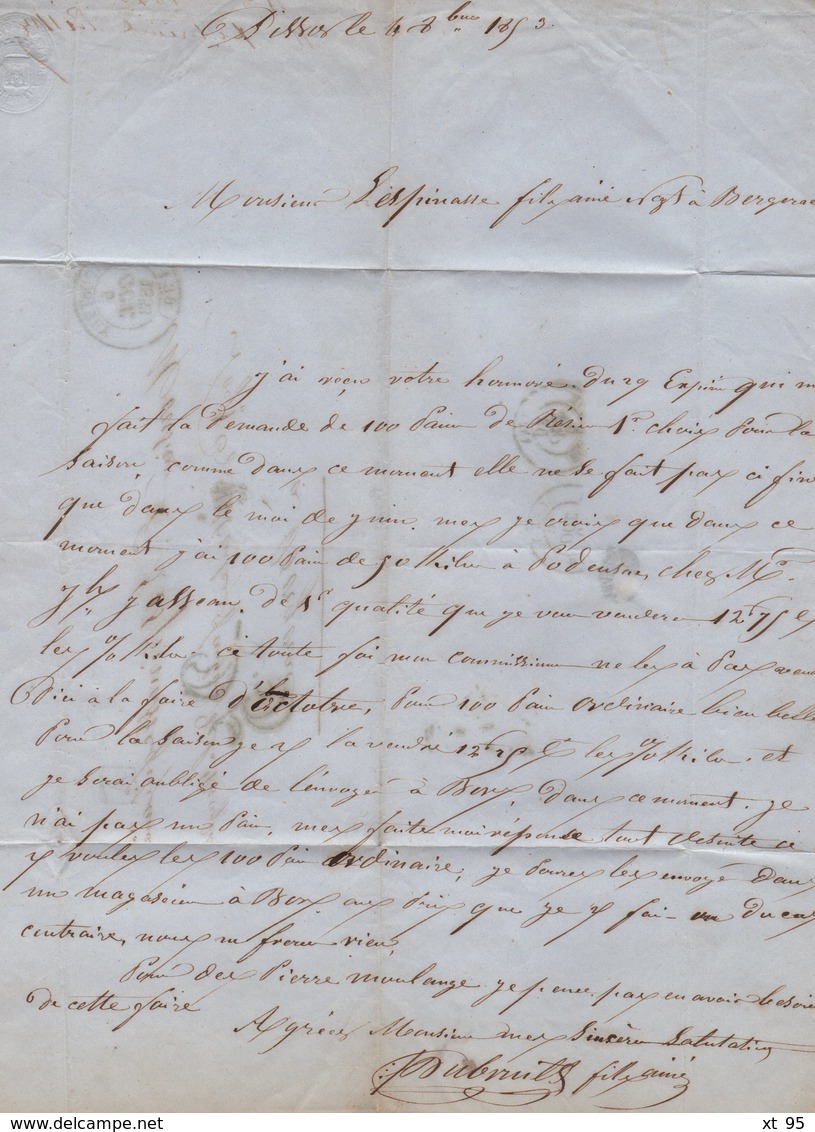 Pissos le 4 8bre 1853
Monsieur Lespinasse fils ainé Negt à Bergerac
J'ai reçus votre honnoré du 29 Expiré qui m
fait la demande de 100 Pain de Résine 1r choix Pour la
saison, comme dans ce moment elle ne se fait pas ci fine
que dans le moi de juin. mes je crois que dans ce
moment j'ai 100 Pain de 50 Kilos à Podensac, chez Mr
Jh de 1e qualité que je vous vendrai 12f 75c
les o/o Kilos ci toute foi mon commissionnaire ne les à Pas vendu
D'ici à la foire D'Octobre, Pour 100 Pain ordinaire bien belle
Pour la saison je vs la vendre 12f 25c les o/o Kilos. et
je serai aubligé de l'envoyé à Borx, dans ce moment. je
n'ai pas un Pain, mes faite moi réponse tout desuite ci
vs voulez les 100 Pain ordinaire, je Pourez les envoyé dans
un magasein à Borx aux Prix que je vs fai ou du cas
contraire, nous ne feron rien,
Pour des Pierre moulange je pence pas en avoir besoin
de cette foire
Agréez Monsieur mes sincère Salutation
Dubruilh fils ainé
xt 95